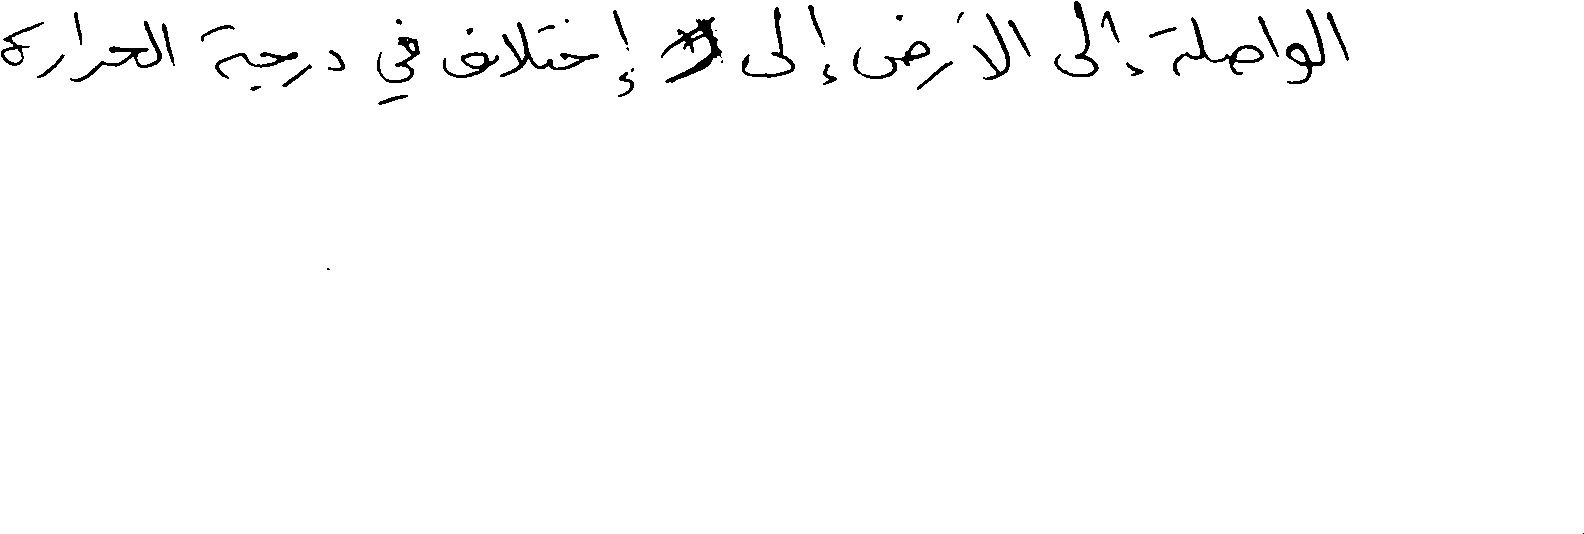 الواصلة إلى الأرض إلى إختلاف في درجة الحرارة